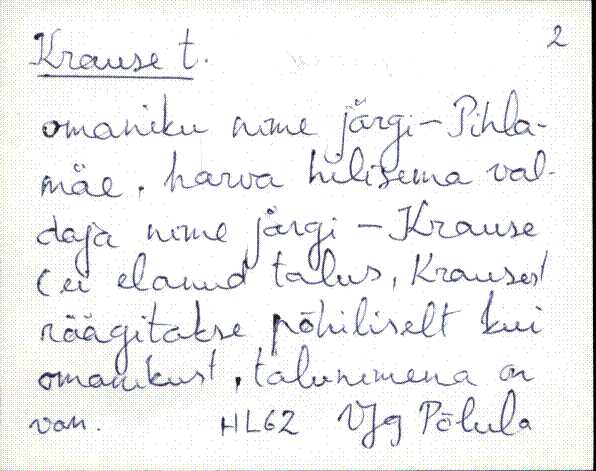 Krause t. 2
omaniku nime järgi - Pihla-
mäe, harva hilisema val-
daja nime järgi - Krause
(ei elanud talus, Krausest
räägitakse põhiliselt kui
omanikust, talunimena on
van. HL62 VJg Põlula